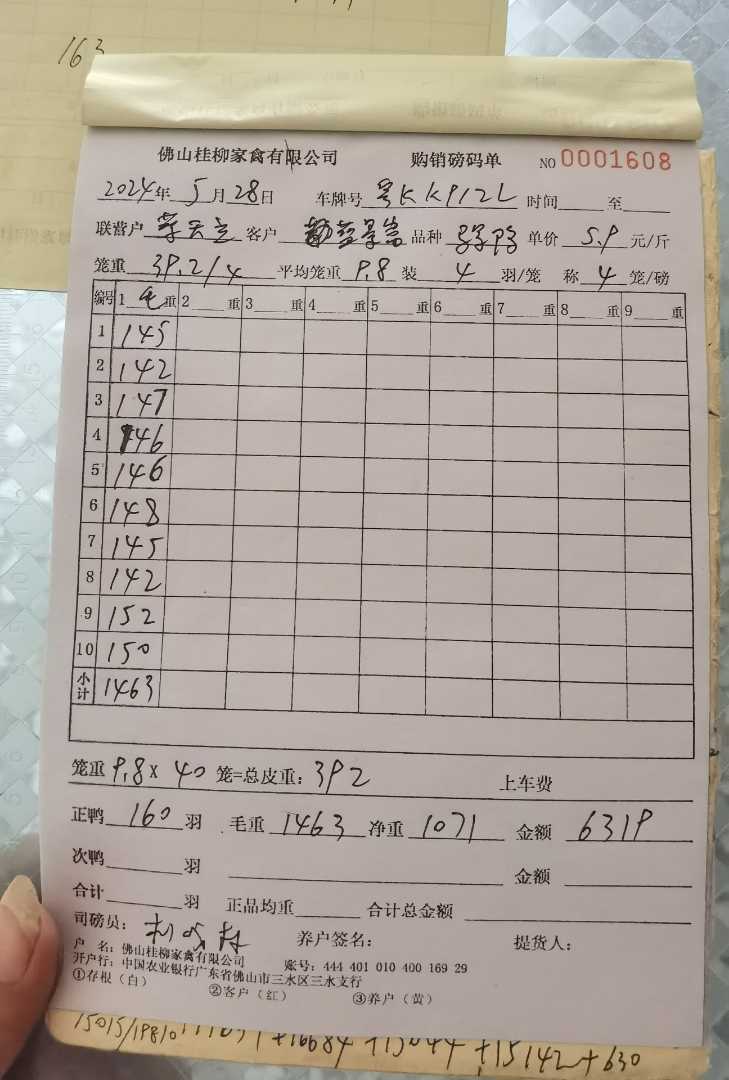 163
佛山桂柳家禽有限公司 购销磅码单 NO 0001608
2024年 5月 28日 车牌号 粤KK912L 时间 至
联营户 客户 品种 单价 5.9 元/斤
笼重 39.2/4 平均笼重 9.8 装 4 羽/笼 称 4 笼/磅
编号 1 毛 重 2 重 3 重 4 重 5 重 6 重 7 重 8 重 9 重
1 145
2 142
3 147
4 146
5 146
6 148
7 145
8 142
9 152
10 150
小计 1463
笼重 9.8 X 40 笼=总皮重: 392 上车费
正鸭 160 羽 毛重 1463 净重 1071 金额 6319
次鸭 羽 金额
合计 羽 正品均重 合计总金额
司磅员: 养户签名: 提货人:
户 名: 佛山桂柳家禽有限公司 账号: 444 401 010 400 169 29
开户行: 中国农业银行广东省佛山市三水区三水支行
①存根(白) ②客户(红) ③养户(黄)
15015/19810 +16684 +15044 +15142+630